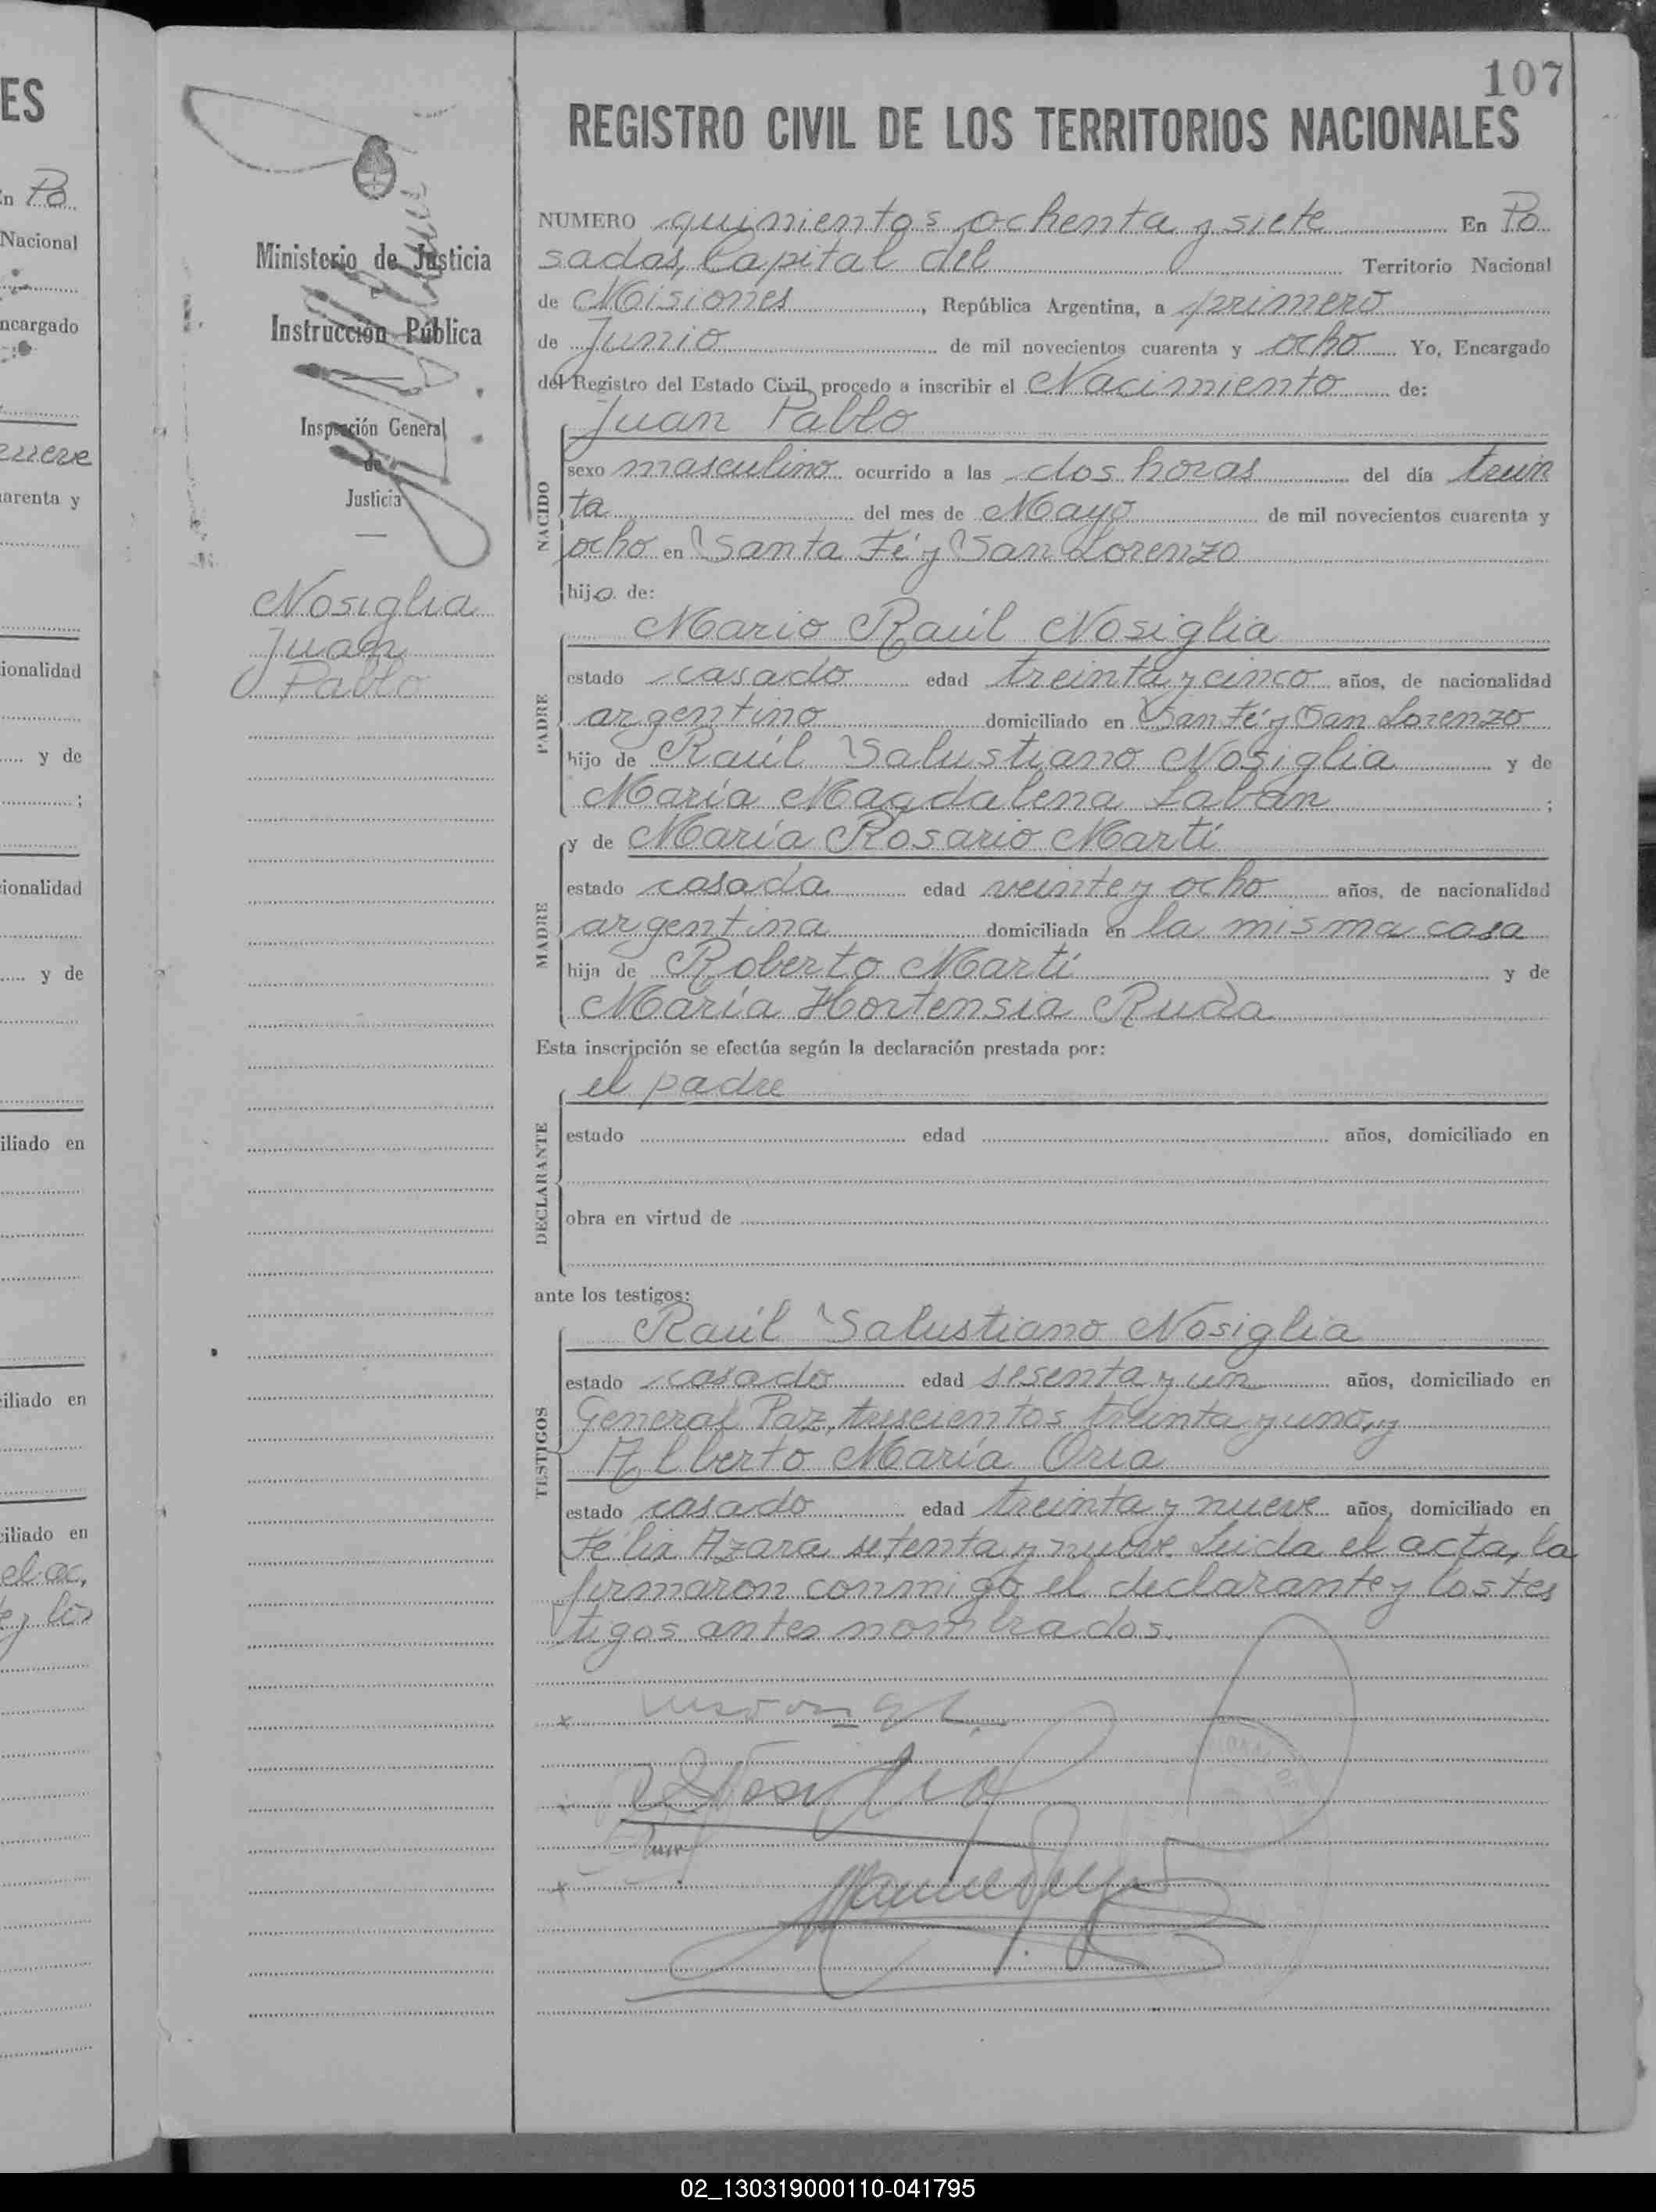 107
ES
REGISTRO CIVIL DE LOS TERRITORIOS NACIONALES
En Po
Nacional
ncargado
nueve
arenta y
ionalidad
y de
;
ionalidad
y de
iliado en
iliado en
ciliado en
el ac,
te y los
Ministerio de Justicia
e
Instrucción Pública
Inspección General
de
Justicia
Nosiglia
Juan
Pablo
NUMERO quinientos ochenta y siete En Po
sadas, Capital del Territorio Nacional
de Misiones, República Argentina, a primero
de Junio de mil novecientos cuarenta y ocho Yo, Encargado
del Registro del Estado Civil, procedo a inscribir el Nacimiento de:
NACIDO
Juan Pablo
sexo masculino ocurrido a las dos horas del día trein
ta del mes de Mayo de mil novecientos cuarenta y
ocho en Santa Fé y San Lorenzo
hijo de:
PADRE
Mario Raúl Nosiglia
estado casado edad treinta y cinco años, de nacionalidad
argentino domiciliado en San Fé y San Lorenzo
hijo de Raúl Salustiano Nosiglia y de
María Magdalena Labán ;
MADRE
y de María Rosario Martí
estado casada edad veinte y ocho años, de nacionalidad
argentina domiciliada en la misma casa
hija de Roberto Martí y de
María Hortensia Ruda
Esta inscripción se efectúa según la declaración prestada por:
DECLARANTE
el padre
estado edad años, domiciliado en
obra en virtud de
ante los testigos:
TESTIGOS
Raúl Salustiano Nosiglia
estado casado edad sesenta y un años, domiciliado en
General Paz, trescientos treinta y uno, y
Alberto María Oria
estado casado edad treinta y nueve años, domiciliado en
Félix Azara setenta y nueve. Leida el acta, la
firmaron conmigo el declarante y los tes
tigos antes nombrados.
02_130319000110-041795